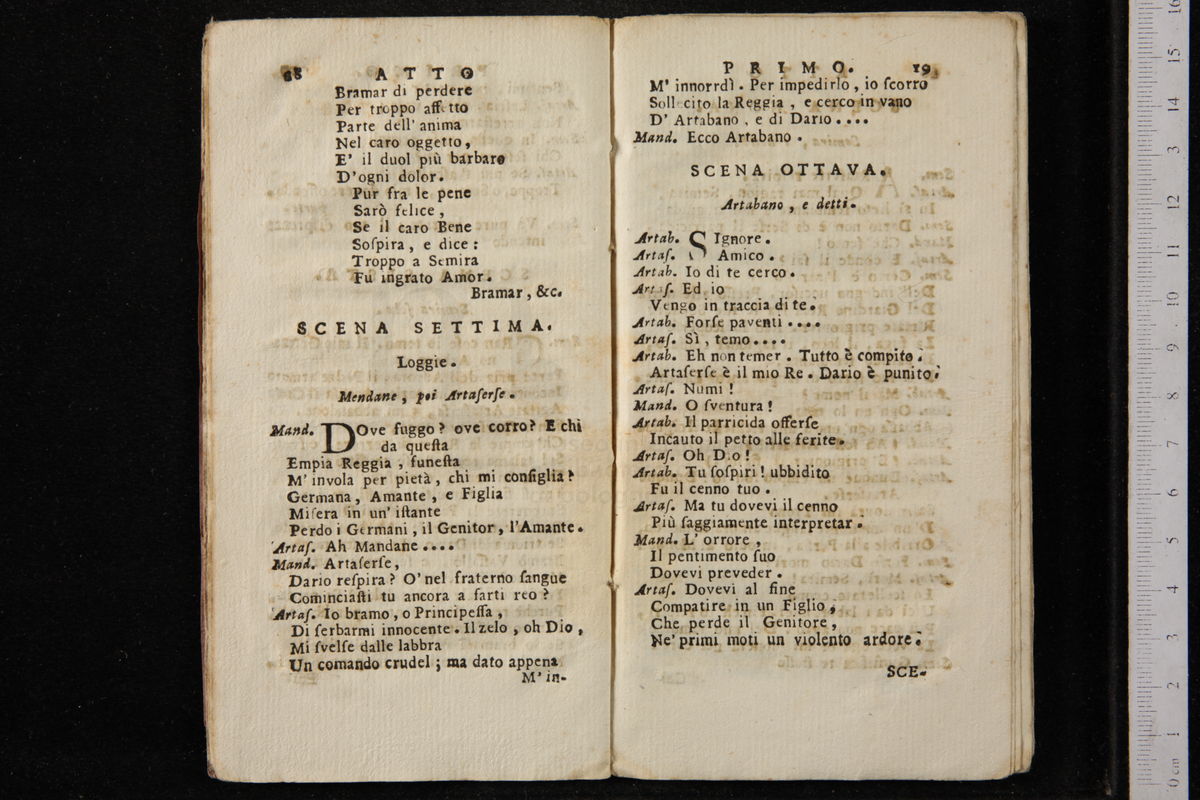 68 ATTO
Bramar di perdere
Per troppo affetto
Parte dell' anima
Nel caro oggetto,
E' il duol più barbaro
D'ogni dolor.
Pur fra le pene
Sarò felice,
Se il caro Bene
Soſpira, e dice:
Troppo a Semira
Fu ingrato Amor.
Bramar, &c.
SCENA SETTIMA.
Loggie.
Mendane, poi Artaſerſe.
Mand. DOve fuggo? ove corro? E chi
da queſta
Empia Reggia, funeſta
M' invola per pietà, chi mi conſiglia?
Germana, Amante, e Figlia
Miſera in un' iſtante
Perdo i Germani, il Genitor, l'Amante.
Artaſ. Ah Mandane....
Mand. Artaſerſe,
Dario reſpira? O' nel fraterno ſangue
Cominciaſti tu ancora a farti reo?
Artaſ. Io bramo, o Principeſſa,
Di ſerbarmi innocente. Il zelo, oh Dio,
Mi ſvelſe dalle labbra
Un comando crudel; ma dato appena
M' in-
PRIMO. 19
M' innorrdì. Per impedirlo, io ſcorro
Soll cito la Reggia, e cerco in vano
D' Artabano, e di Dario....
Mand. Ecco Artabano.
SCENA OTTAVA.
Artabano, e detti.
Artab. SIgnore.
Artaſ. Amico.
Artab. Io di te cerco.
Artaſ. Ed io
Vengo in traccia di te.
Artab. Forſe paventi....
Artaſ. Sì, temo....
Artab. Eh non temer. Tutto è compito.
Artaſerſe è il mio Re. Dario è punito.
Artaſ. Numi!
Mand. O ſventura!
Artab. Il parricida offerſe
Incauto il petto alle ferite.
Artaſ. Oh D.o!
Artab. Tu ſoſpiri! ubbidito
Fu il cenno tuo.
Artaſ. Ma tu dovevi il cenno
Più ſaggiamente interpretar.
Mand. L' orrore,
Il pentimento ſuo
Dovevi preveder.
Artaſ. Dovevi al fine
Compatire in un Figlio,
Che perde il Genitore,
Ne' primi moti un violento ardore.
SCE-
0 cm 1 2 3 4 5 6 7 8 9 10 11 12 13 14 15 16